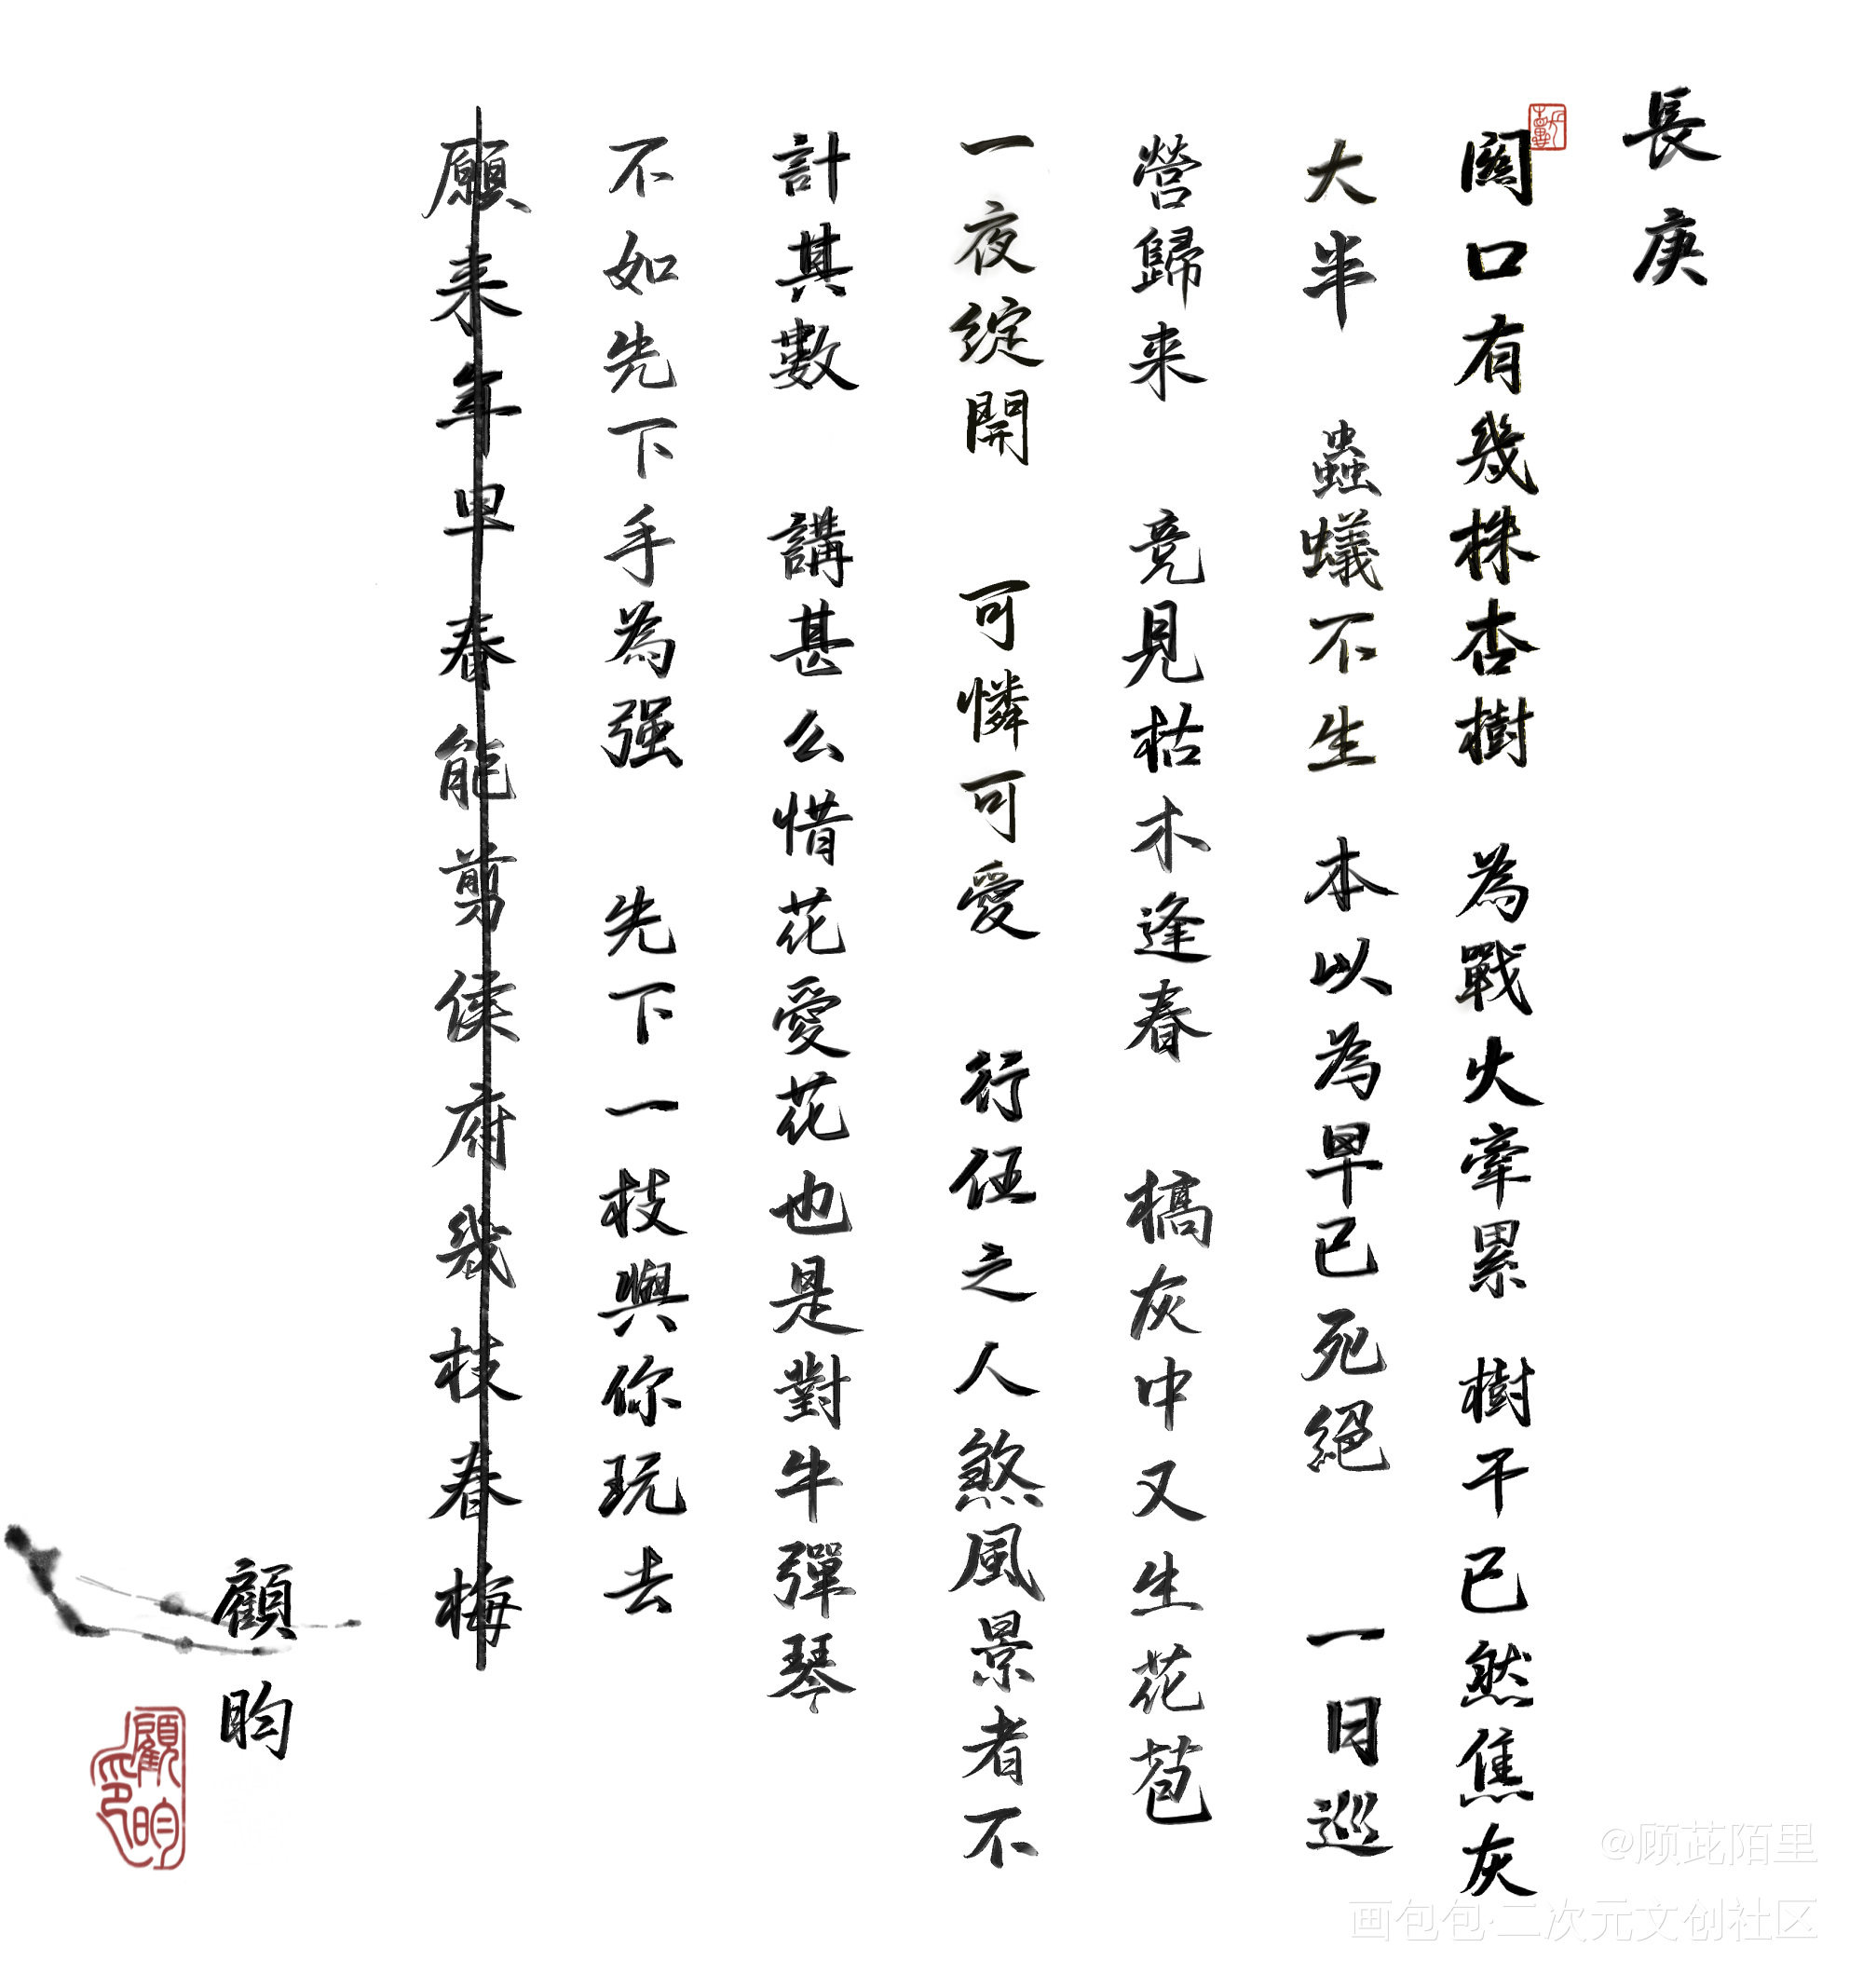 長庚
關口有幾株杏樹 為戰火牽累 樹干已然焦灰
大半 蟲蟻不生 本以為早已死絕 一日巡
營歸来 竟見枯木逢春 槁灰中又生花苞
一夜綻開 可憐可愛 行伍之人煞風景者不
計其數 講甚么惜花愛花也是對牛彈琴
不如先下手為强 先下一枝與你玩去
願来年早春能剪侯府幾枝春梅
顧昀
顧昀印
@顾茈陌里
画包包·二次元文创社区